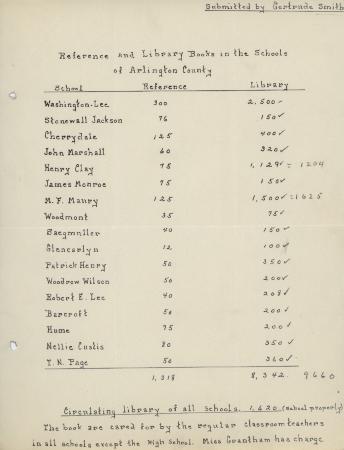 Submitted by Gertrude Smith
Reference and Library Books in the Schools
of Arlington County
School Reference Library
Washington-Lee 300 2,500✓
Stonewall Jackson 76 150✓
Cherrydale 125 400✓
John Marshall 60 320✓
Henry Clay 75 1,129✓ = 1204
James Monroe 75 150✓
M. F. Maury 125 1,500✓ = 1625
Woodmont 35 75✓
Saegmuller 40 150✓
Glencarlyn 12 100✓
Patrick Henry 50 350✓
Woodrow Wilson 50 200✓
Robert E. Lee 40 208✓
Barcroft 50 200✓
Hume 75 200✓
Nellie Custis 80 350✓
T. N. Page 50 360✓
1,318 8,342. 9660
Circulating library of all schools. 1,620 (school property)
The book are cared for by the regular classroom teachers
in all schools except the High School. Miss Grantham has charge